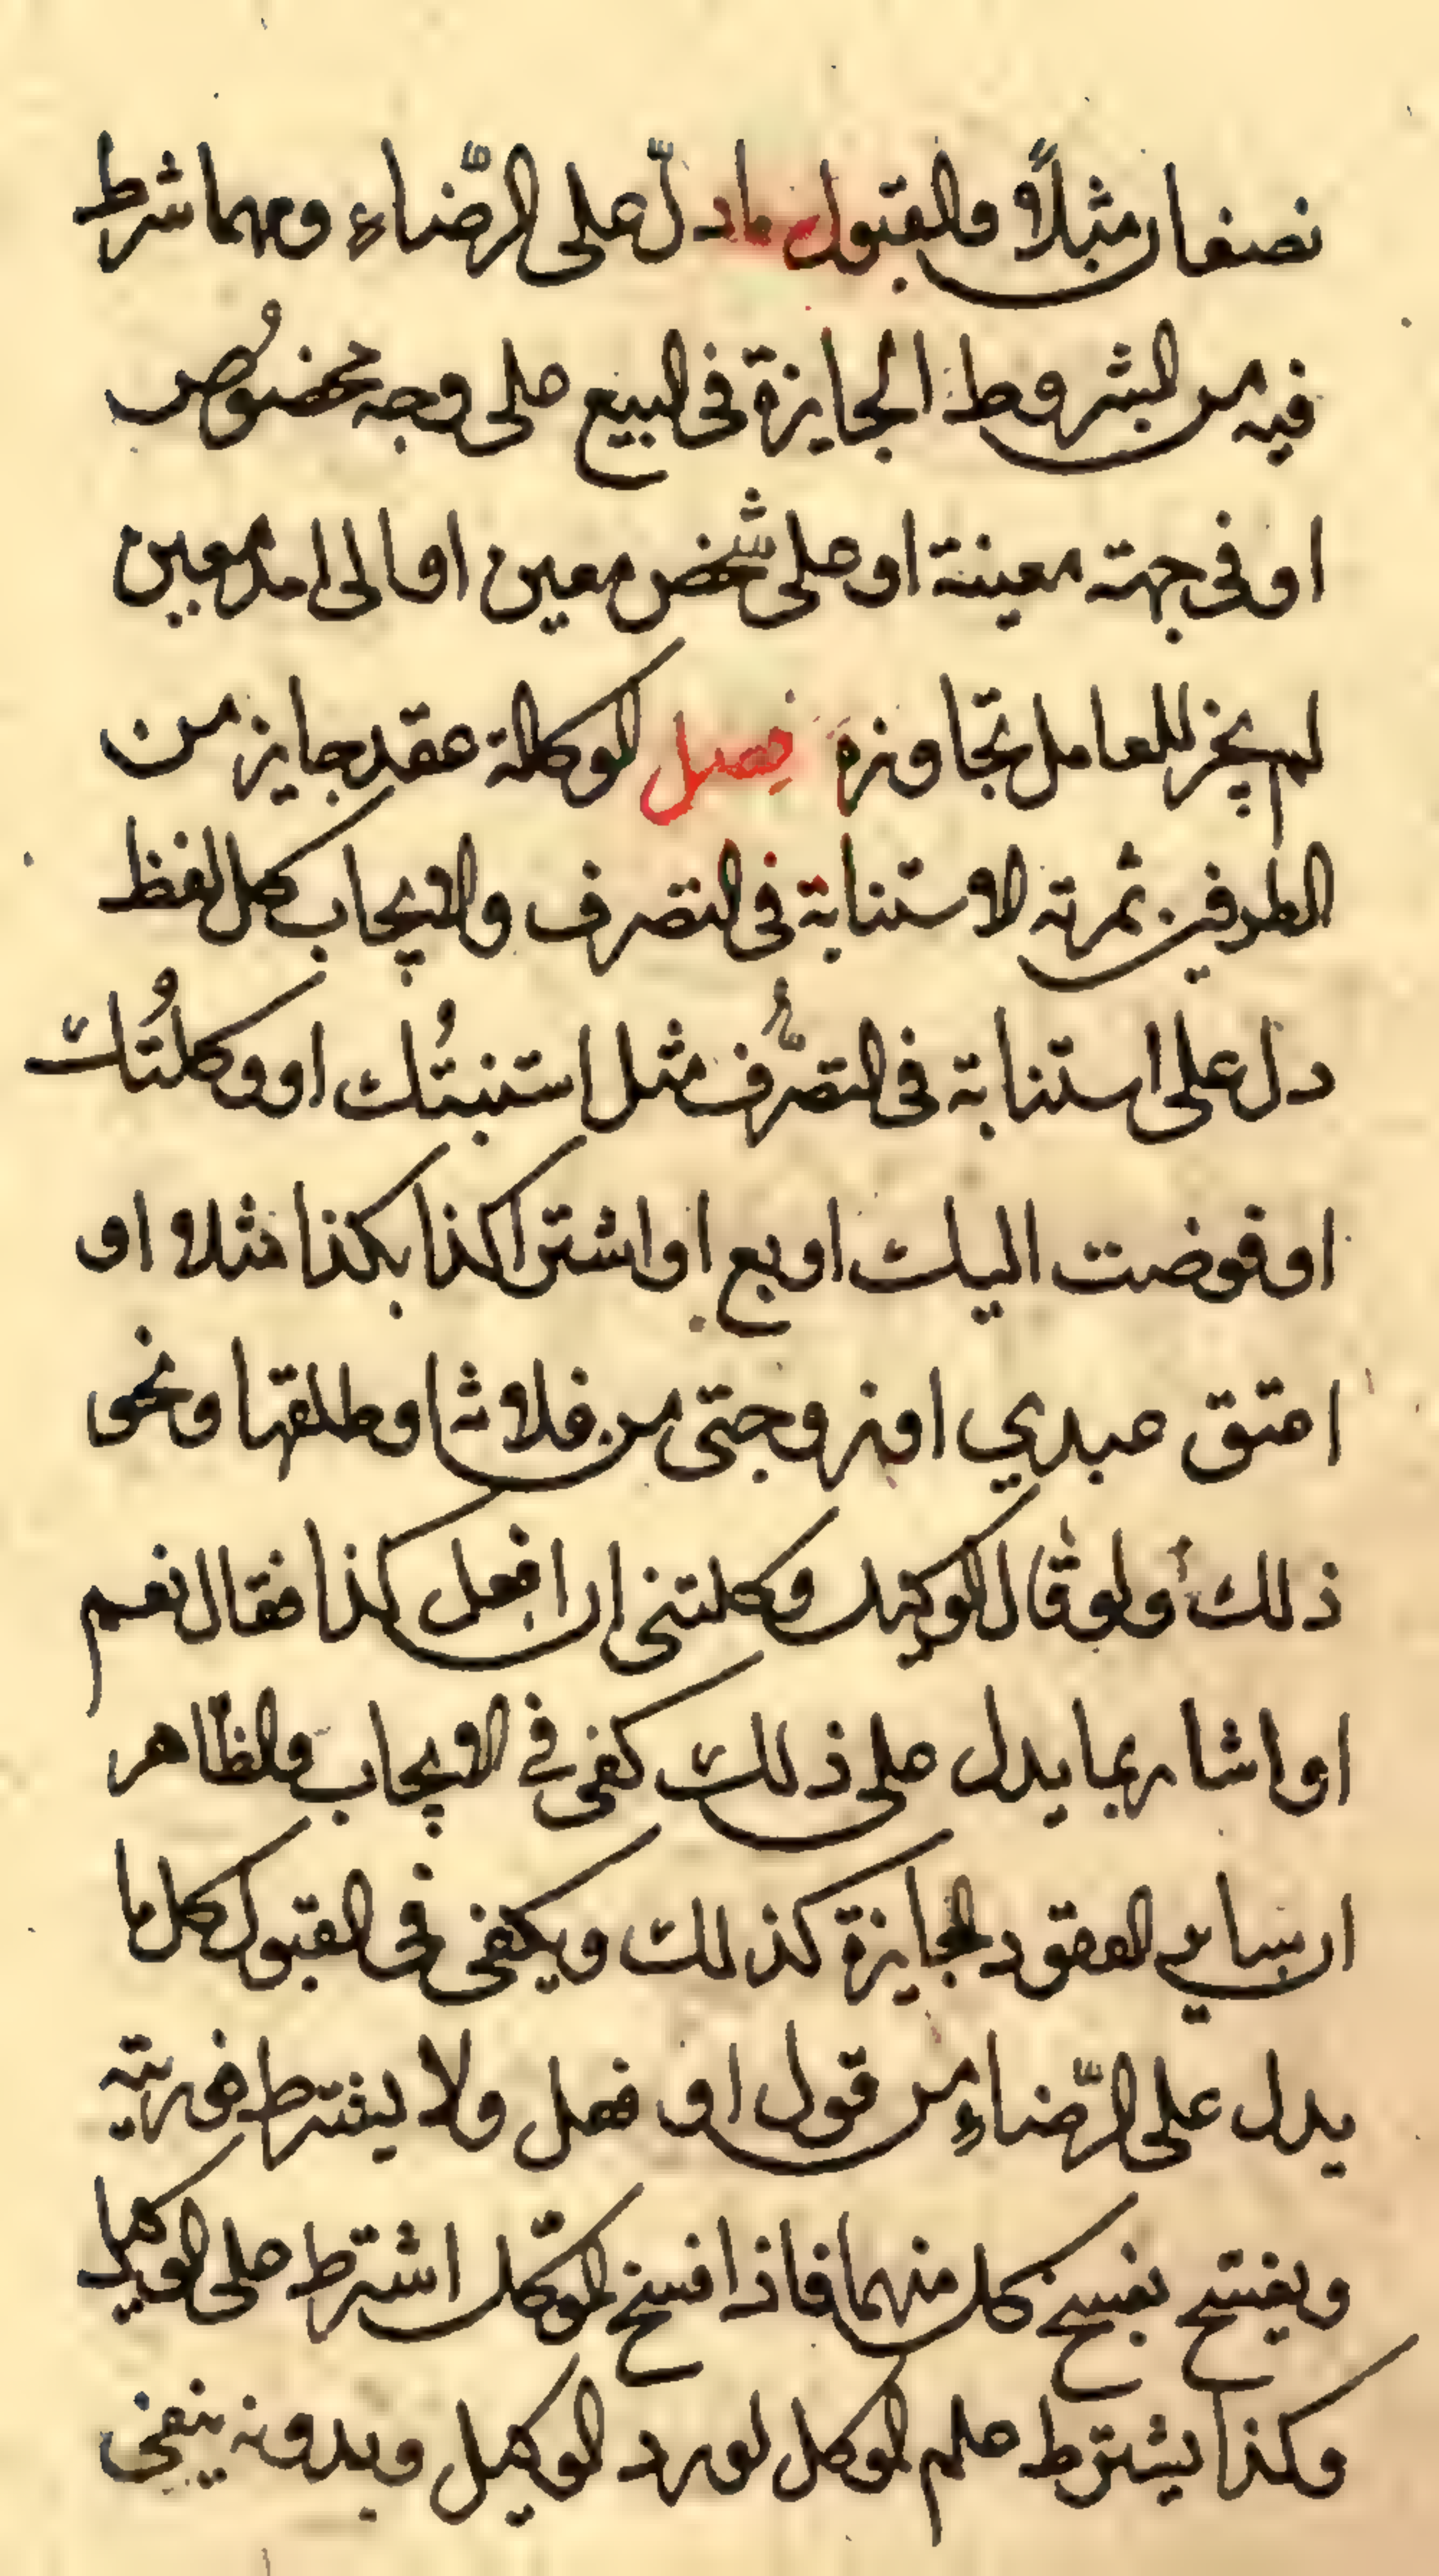 نصفان مثلاً والقبول ما دلّ على الرّضاء ومهما شرط
فيه من الشروط الجايزة في البيع على وجه مخصُوص
او في جهة معينة او على شخص معين او الى امد معين
لم يجز للعامل تجاوزه فصل الوكالة عقد جايز من
الطرفين ثمرته الاستنابة في التصرف والايجاب كل لفظ
دل على استنابة في التصّرف مثل استنبتُك او وكلتُك
او فوضت اليك او بع او اشتر كذا بكذا مثلا او
اعتق عبدي او زوجتى من فلان او طلقها ونحو
ذلك ولو قال الوكيل وكلتنى ان افعل كذا فقال نعم
او اشار بما يدل على ذلك كفى في الايجاب والظّاهر
ان ساير العقود الجايزة كذلك ويكفى في القبول كل ما
يدل على الرّضاء من قول او فعل ولا يشترط فوريته
وينفسخ بفسخ كل منهما فاذا فسخ الموّكل اشترط على الوكيل
وكذا يشترط علم الموكل لو رد الوكيل وبدونه ينفى